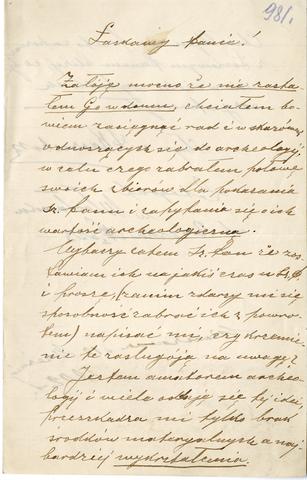 981.
Łaskawy Panie!
Żałuję mocno że nie zasta-
łem Go w domu, chciałem bo-
wiem zasięgnąć rad i wskazówek
odnoszących się do archeologij,
w celu czego zabrałem połowę
swoich zbiorów dla pokazania
Sz. Panu i zapytania się o ich
wartość archeologiczną.
Wybaczy zatem Sz. Pan że zos-
tawiam ich na jakiś czas u
i proszę, (zanim zdarzy mi się
sposobność zabrać ich z powro-
tem) napisać mi, czy krzemie-
nie te zasługują na uwagę?
Jestem amatorem archeo-
logij i wiele oddaję się tej idei,
przeszkadza mi tylko brak
środków materyalnych a naj-
bardziej wykształcenia.